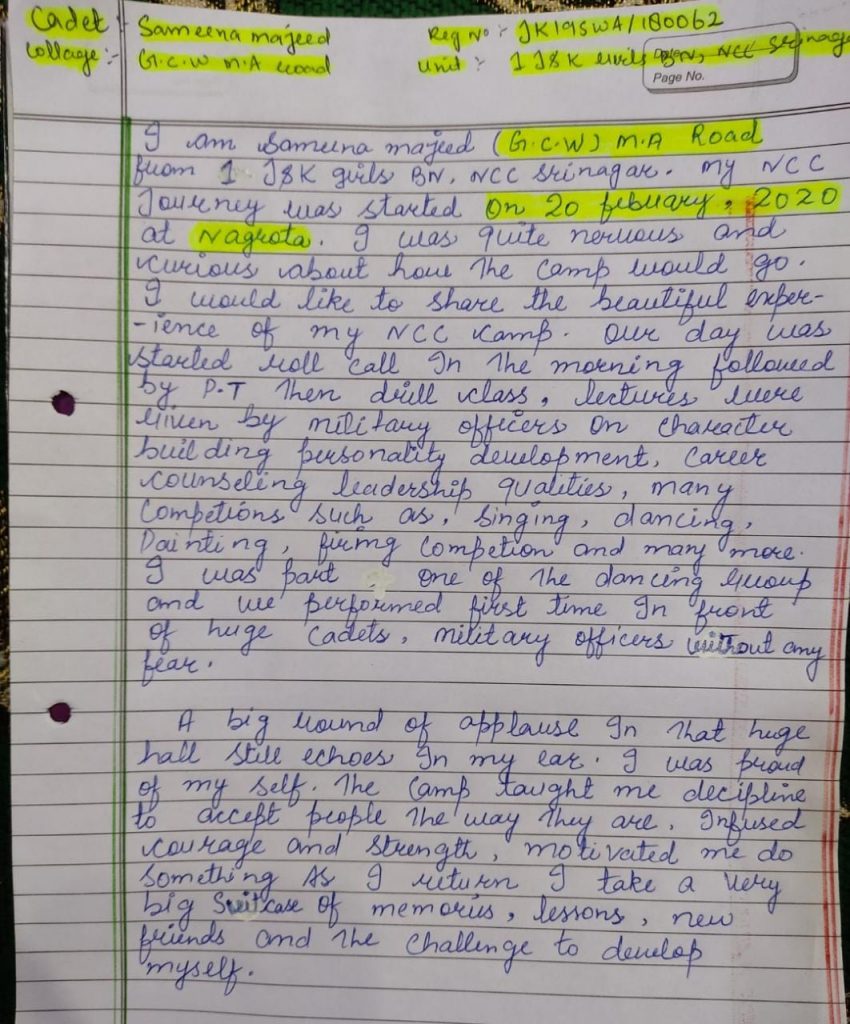 Cadet :- Sameena majeed Reg No :- JK19SWA/180062
Collage :- G.C.W M.A Road Unit :- 1 J&K Girls BN, NCC Srinagar
Date
Page No.
I am Sameena majeed (G.C.W) M.A Road
from 1 J&K girls BN, NCC Srinagar. my NCC
Journey was started On 20 febuary, 2020
at Nagrota. I was quite nervous and
curious about how the camp would go.
I would like to share the beautiful exper-
-ience of my NCC camp. Our day was
started roll call In the morning followed
by P.T Then drill class, lectures were
Given by military officers On character
building personality development, career
counseling leadership qualities, many
Competions such as, Singing, dancing,
Painting, firing Competion and many more.
I was part one of the dancing Group
and we performed first time In front
of huge cadets, military officers without any
fear.
A big round of applause In That huge
hall still echoes In my ear. I was proud
of my self. The Camp taught me decipline
to accept people the way They are. Infused
courage and strength, motivated me do
Something As I return I take a very
big Suitcase Of memoris, lessons, new
friends and The challenge to develop
myself.